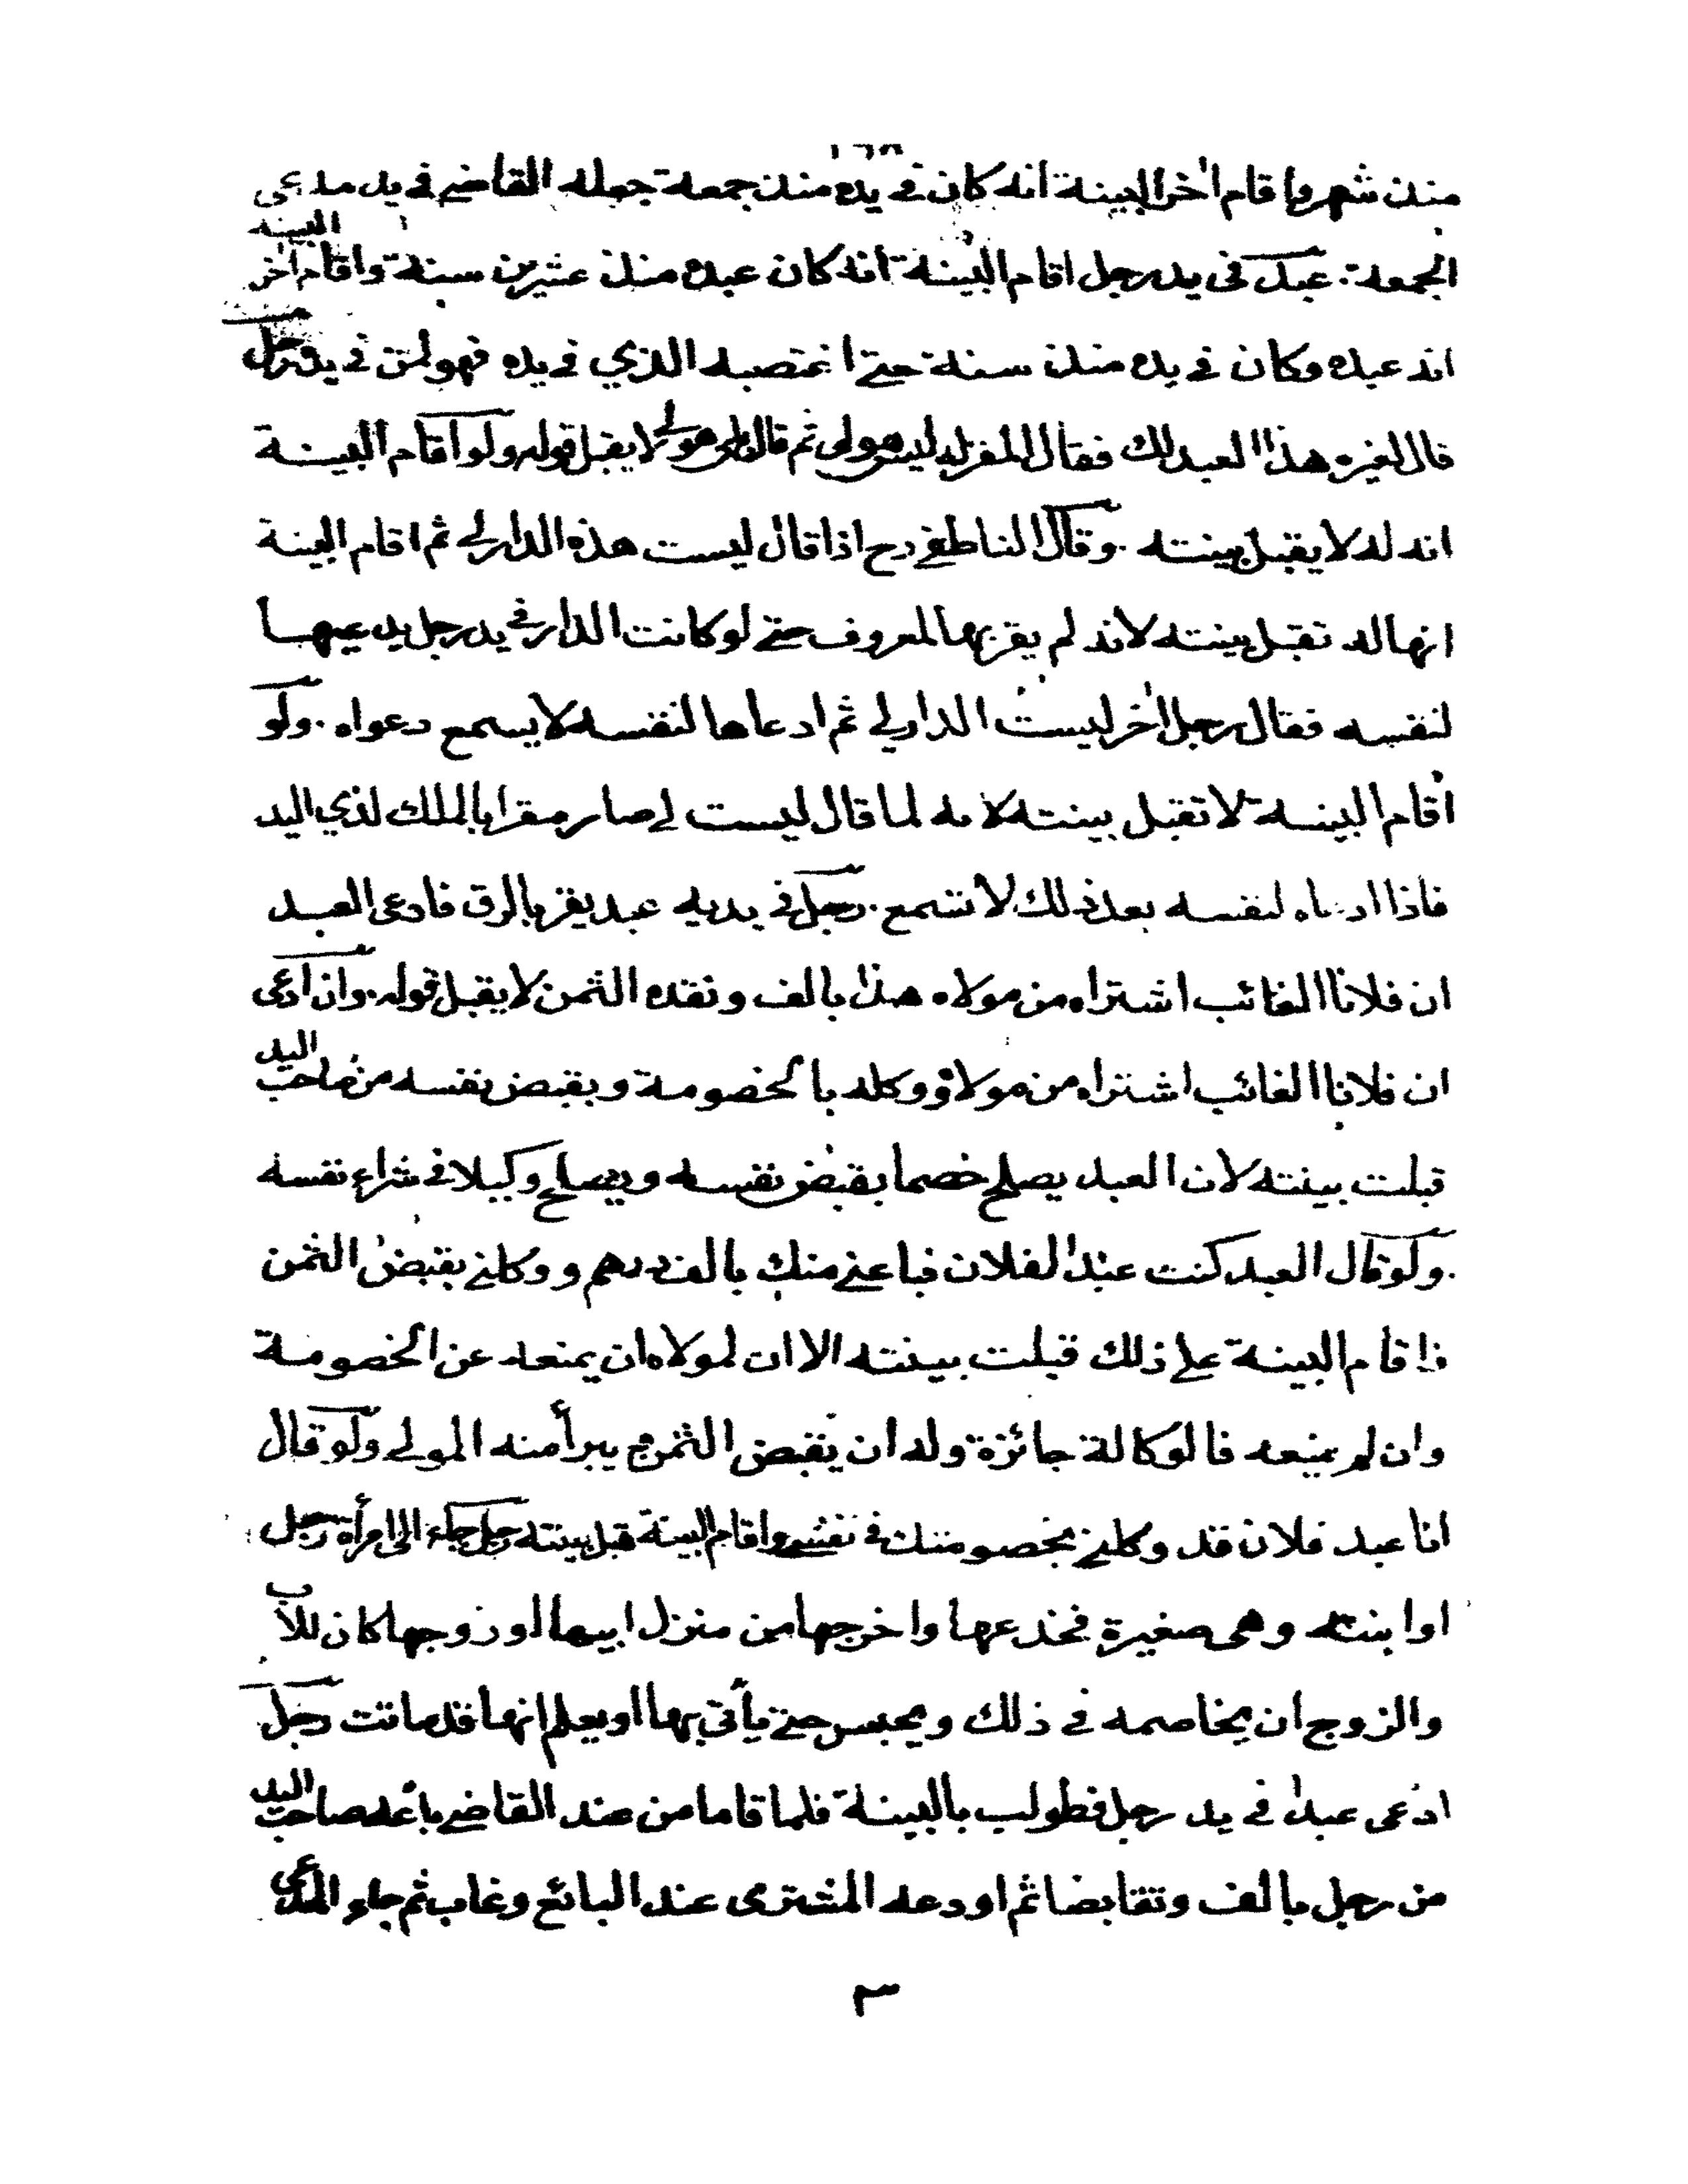 منذ شهر واقام اخر البينة انه كان في يده منذ جمعة جعله القاضي في يد مدعى
الجمعة. عبد في يد رجل اقام البينة انه كان عبده منذ عشرين سنة واقام اخر البينه
انه عبده وكان في يده منذ سنة حتى اغتصبه الذي في يده فهو لمن في يده رجل
قال لغيره هذا العبد لك فقال المقر له ليس هو لى ثم قال هو لي لا يقبل قوله ولو اقام البينة
انه له لا يقبل بينته. وقال الناطفي رح اذا قال ليست هذه الدار لي ثم اقام البينة
انها له تقبل بينته لانه لم يقر بها لمعروف حتى لو كانت الدار في يد رجل يدعيها
لنفسه فقال رجل اخر ليست الدار لي ثم ادعاها لنفسه لا يسمع دعواه. ولو
اقام البينة لا تقبل بينته لانه لما قال ليست لي صار مقرا بالملك لذي اليد
فاذا ادعاه لنفسه بعد ذلك لا تسمع. رجل في يديه عبد يقر بالرق فادعى العبد
ان فلانا الغائب اشتراه من مولاه هذا بالف ونقده الثمن لا يقبل قوله. وان ادعى
ان فلانا الغائب اشتراه من مولاه ووكله بالخصومة وبقبض نفسه من صاحب اليد
قبلت بينته لان العبد يصلح خصما بقبض نفسه ويصلح وكيلا في شراء نفسه
.ولو قال العبد كنت عبدا لفلان فباعني منك بالف درهم ووكلني بقبض الثمن
فاقام البينة على ذلك قبلت بينته الا ان لمولاه ان يمنعه عن الخصومة
وان لم يمنعه فالوكالة جائزة وله ان يقبض الثمن ويبرأ منه المولى ولو قال
انا عبد فلان قد وكلني بخصومتك في نفسي واقام البينة قبل بينته رجل جاء الى امرأة رجل
او ابنته وهى صغيرة فخدعها واخرجها من منزل ابيها او زوجها كان للاب
والزوج ان يخاصمه في ذلك ويحبس حتى يأتى بها او يعلم انها قد ماتت رجل
ادعى عبدا في يد رجل فطولب بالبينة فلما قاما من عند القاضي باعه صاحب اليد
من رجل بالف وتقابضا ثم اودعه المشترى عند البائع وغاب ثم جاء المدعى
٣